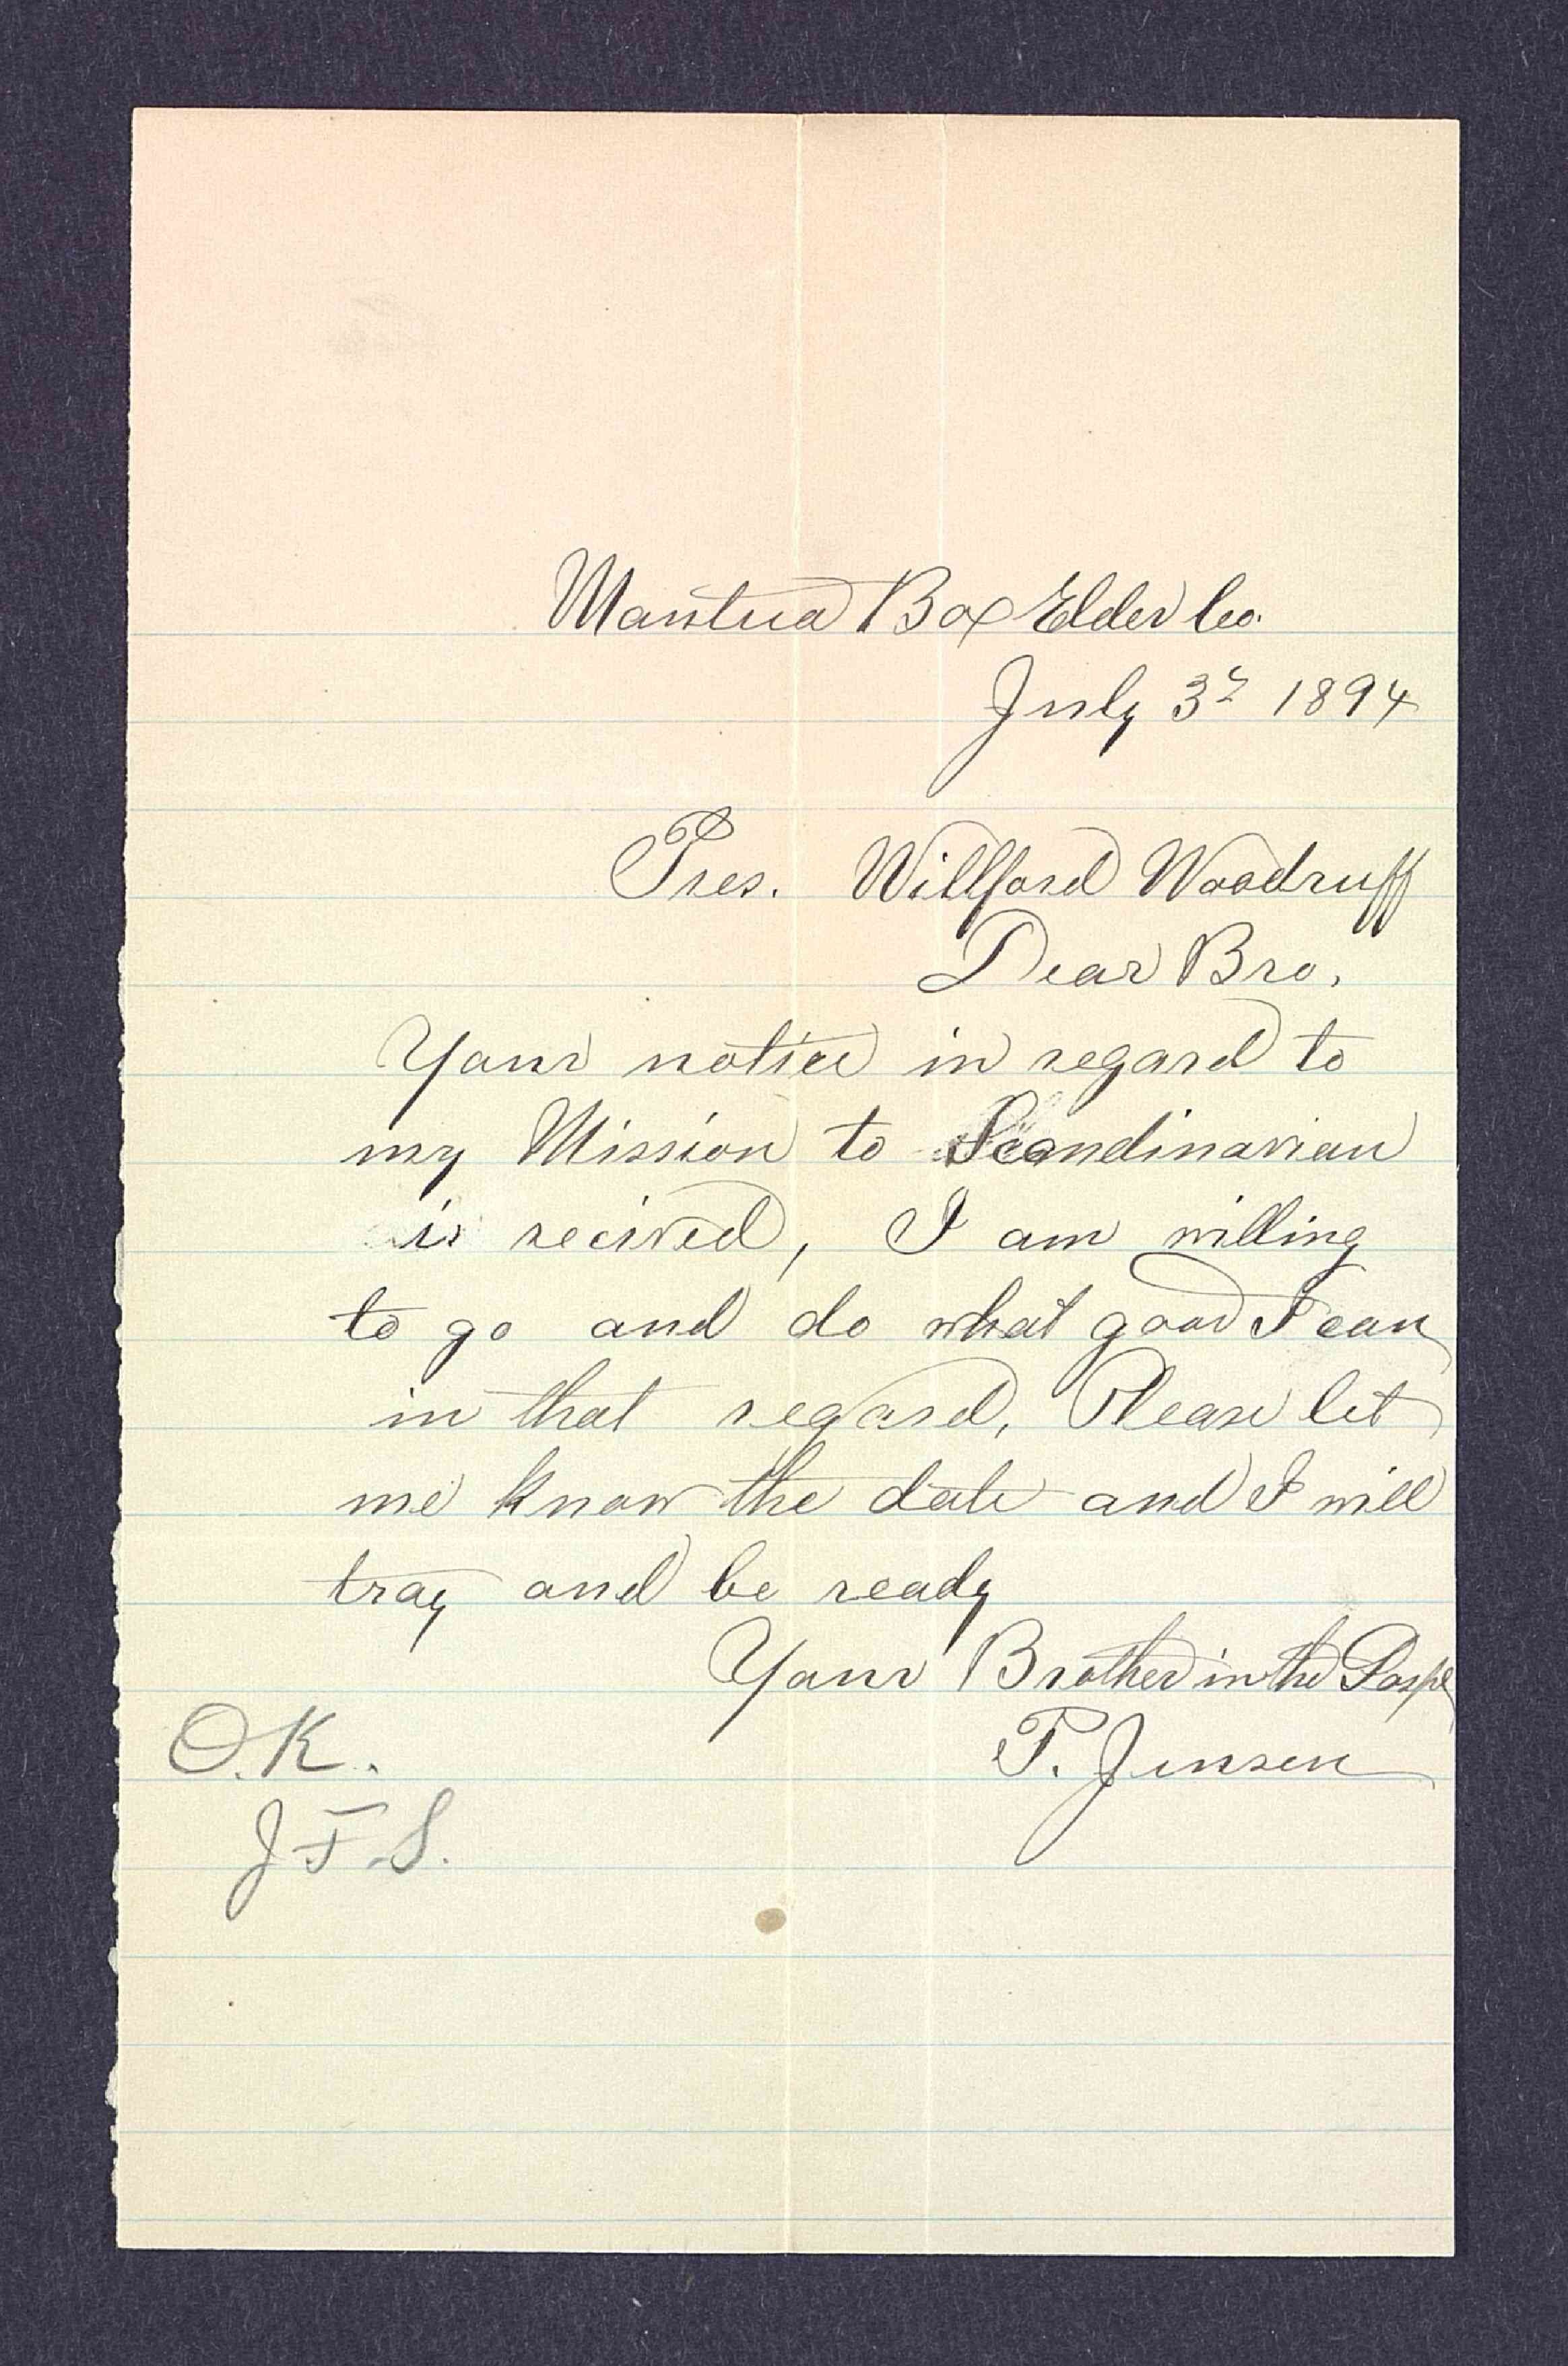 Mantua Box Elder Co.
July 3d 1894
Pres. Willford Woodruff
Dear Bro.
Your notice in regard to
my Mission to Scandinavian
is recived, I am willing
to go and do what good I can
in that regard, Please let
me know the date and I will
tray and be ready
Your Brother in the Gospel
P. Jensen
O.K.
J.F.S.